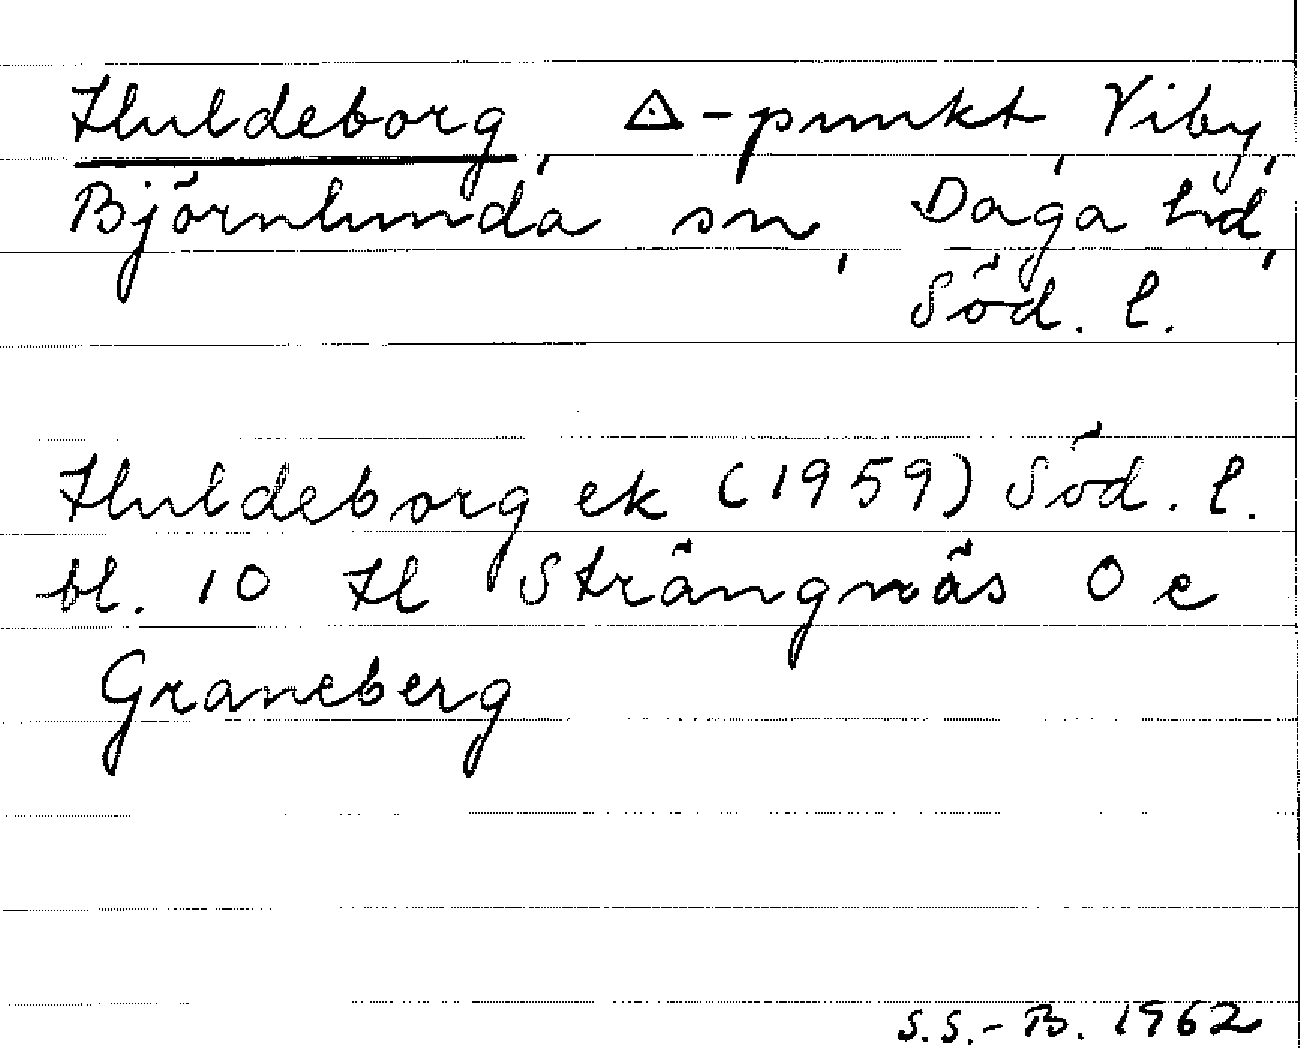 Huldeborg, △-punkt, Viby,
Björnlunda sn, Daga hd,
Söd. l.
Huldeborg ek (1959) Söd. l.
bl. 10 H Strängnäs 0 e
Graneberg
S.S.-B. 1962